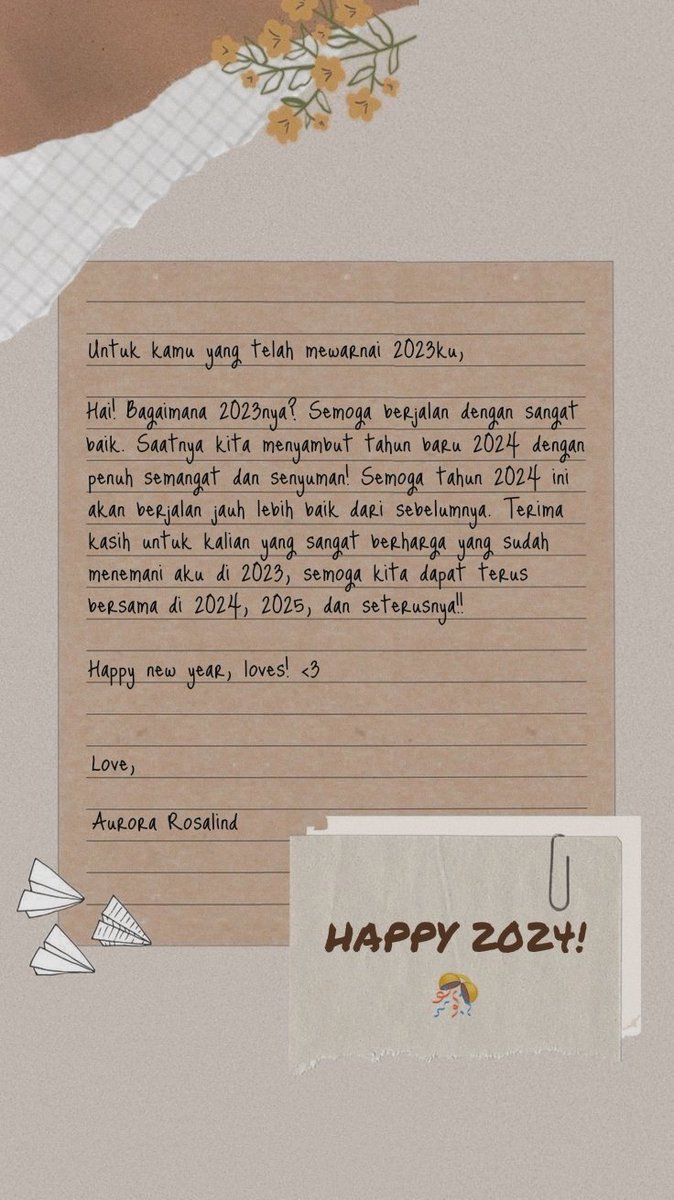 Untuk kamu yang telah mewarnai 2023ku,
Hai! Bagaimana 2023nya? Semoga berjalan dengan sangat
baik. Saatnya kita menyambut tahun baru 2024 dengan
penuh semangat dan senyuman! Semoga tahun 2024 ini
akan berjalan jauh lebih baik dari sebelumnya. Terima
kasih untuk kalian yang sangat berharga yang sudah
menemani aku di 2023, semoga kita dapat terus
bersama di 2024, 2025, dan seterusnya!!
Happy new year, loves! <3
Love,
Aurora Rosalind
HAPPY 2024!